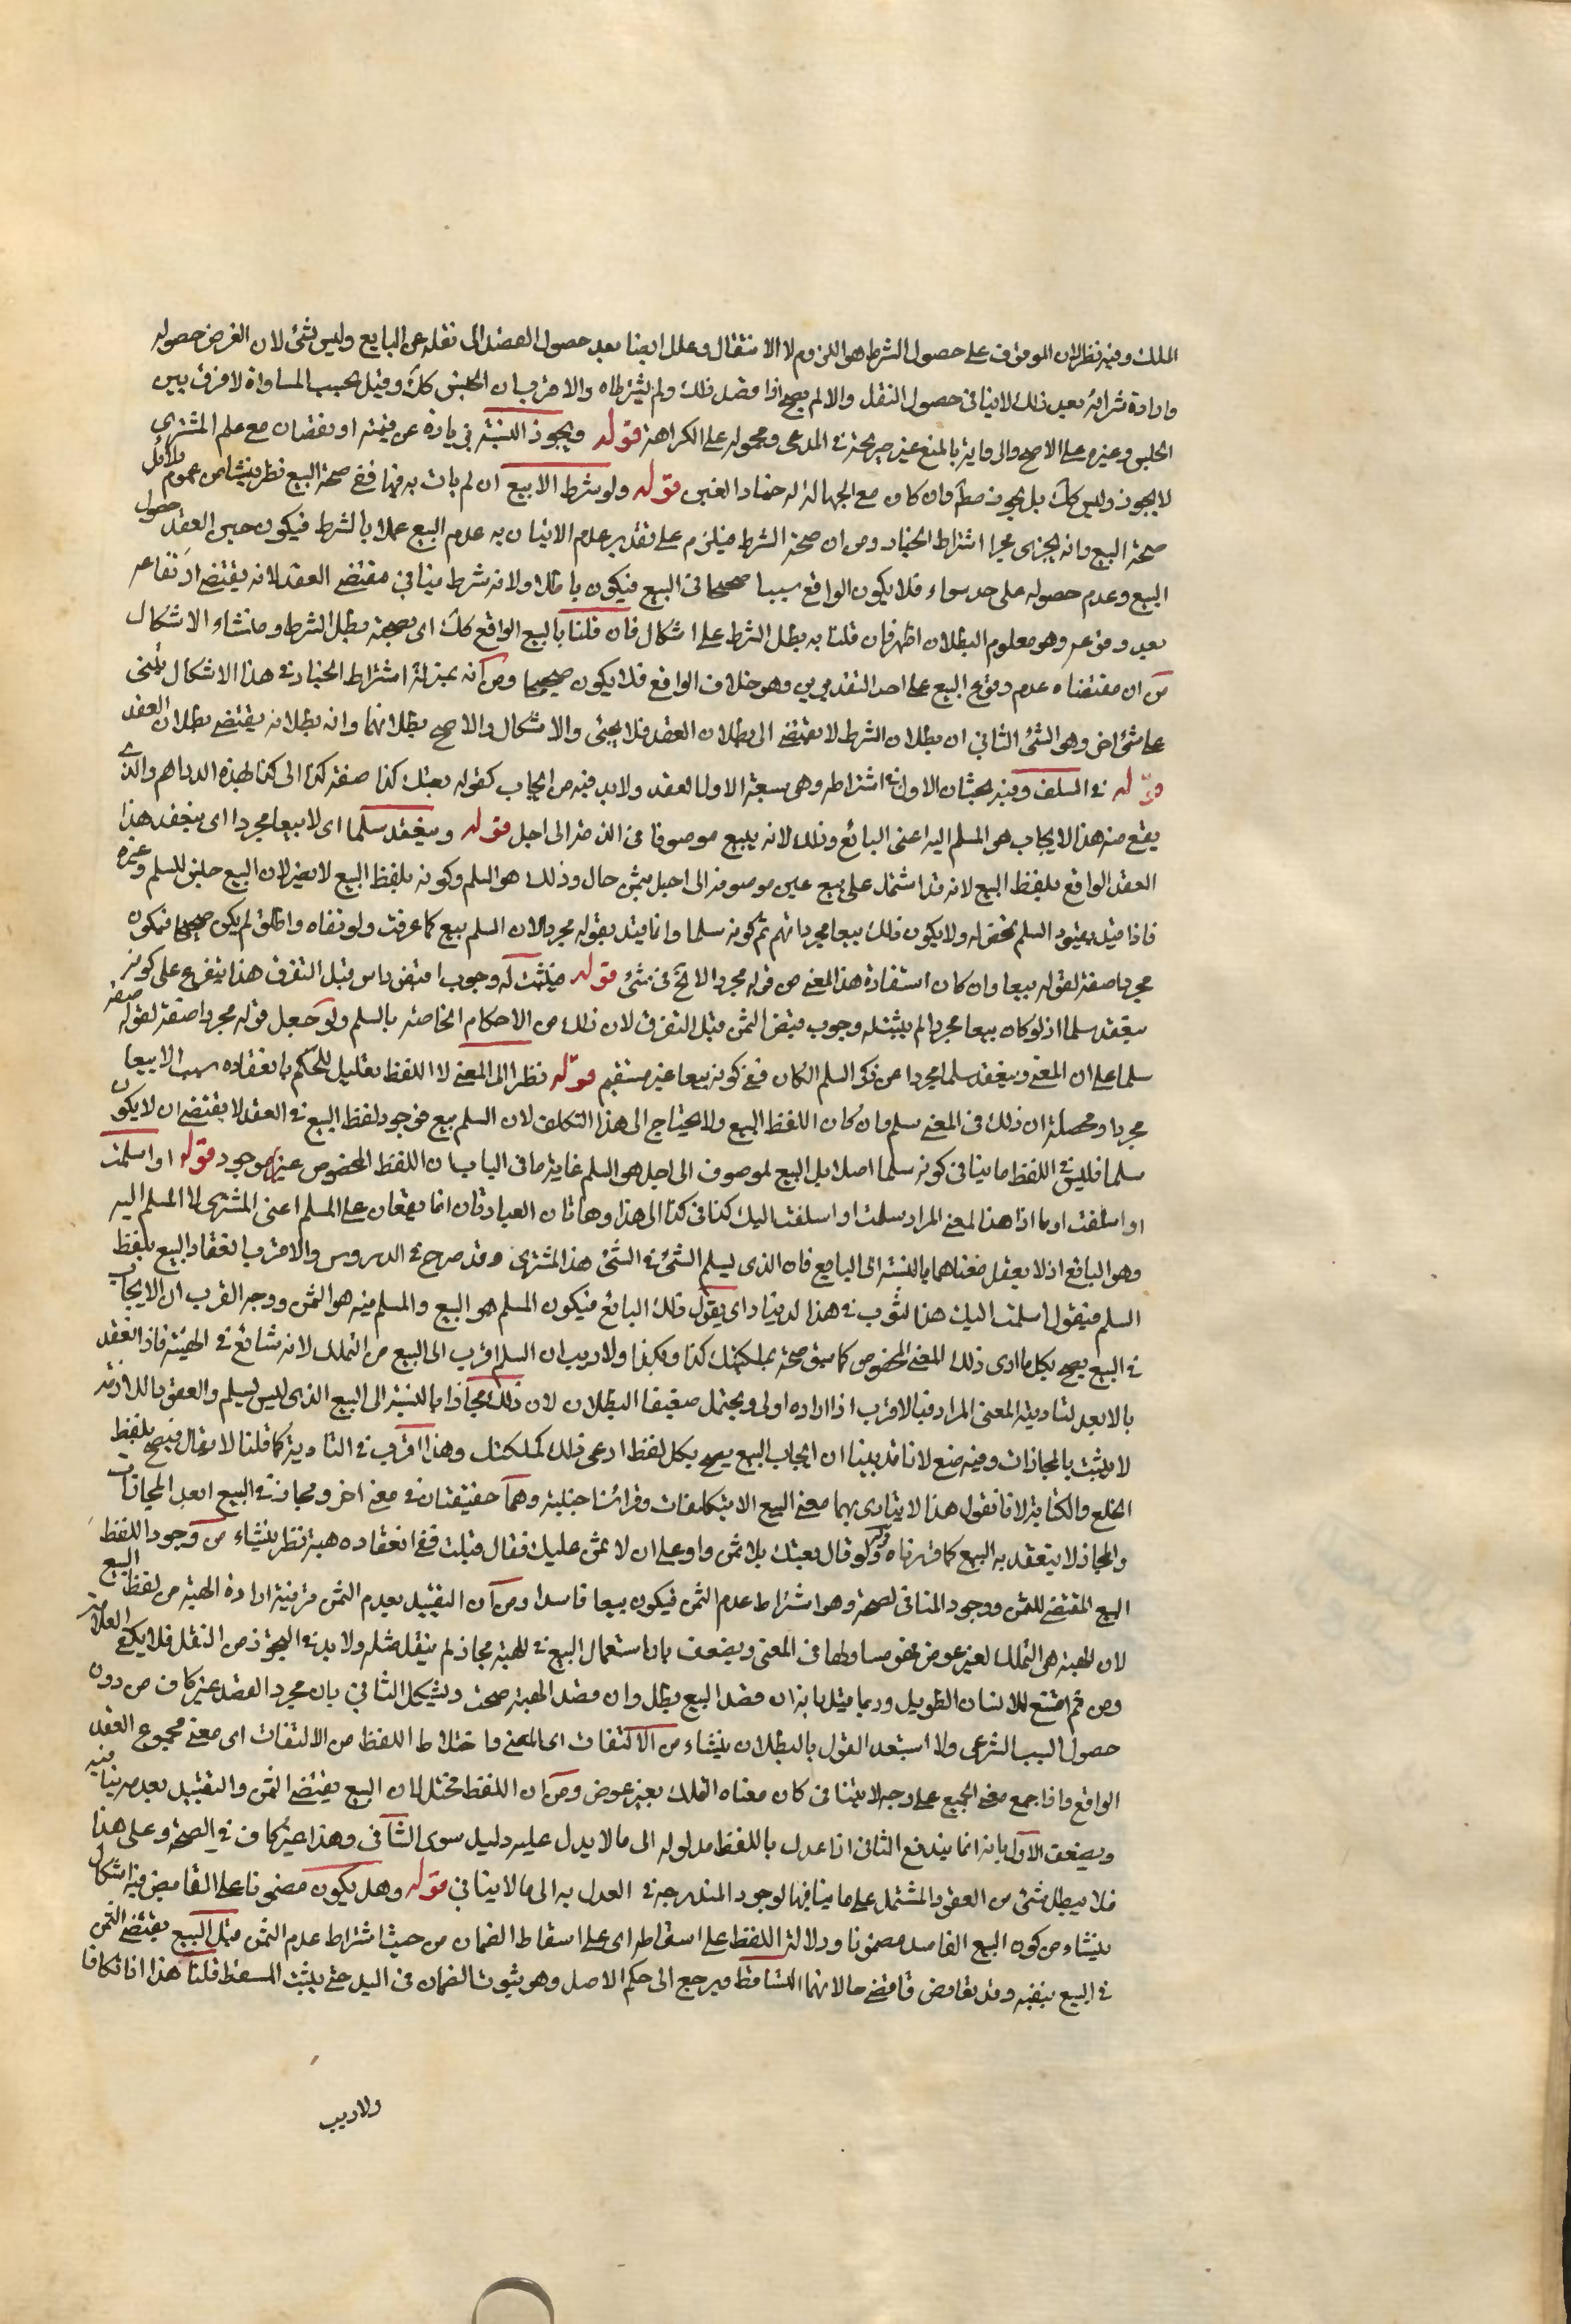 الملك وفيه نظر لان الموقوف على حصول الشرط هو اللزوم لا الانتقال وعلل ايضا بعد حصول القصد الى نقله عن البايع وليس بشئ لان الغرض حصوله
وارادة شرائه بعد ذلك لا ينافى حصول النقل والا لم يصح اذا قصد ذلك ولم يشترطاه والاقرب ان الحبس كك وقيل يجب المساواة لا فرق بين
الحلبى وغيره على الاصح والرواية بالمنع غير صريحة فى المدعى ومحموله على الكراهة قوله ويجوز النسيئة بزيادة عن قيمته او نقصان مع علم المشترى
لا يجوز وليس كك بل يجوز مطلقا وان كان مع الجهالة له خيار الغبن قوله ولو شرط الا بيع ان لم يات به فيها ففى صحة البيع نظر ينشاء من عموم دلائل
صحة البيع وانه يجرى مجرا اشتراط الخيار ومن ان صحة الشرط يلزم على تقدير عدم الاتيان به عدم البيع عملا بالشرط فيكون حين العقد حصول
البيع وعدم حصوله على حد سواء فلا يكون الواقع سببا صحيحا فى البيع فيكون باطلا ولانه شرط ينافى مقتضى العقد لانه يقتضى ارتفاعه
بعد وقوعه وهو معلوم البطلان اظهر فان قلنا به بطل الشرط على اشكال فان قلنا بالبيع الواقع كك اى بصحته بطل الشرط ومنشاء الاشكال
من ان مقتضاه عدم وقوع البيع على احد التقديرين وهو خلاف الواقع فلا يكون صحيحا ومن انه بمنزلة اشتراط الخيار فى هذا الاشكال يبنى
على شئ اخر وهى الشئ الثانى ان بطلان الشرط لا يقتضى الى بطلان العقد فلا يجئى والاشكال والاصح بطلانهما وانه بطلانه يقتضى بطلان العقد
قوله فى السلف وفيه بحثان الاول فى اشتراطه وهى سبعة الاول العقد ولا بد فيه من ايجاب كقوله بعتك كذا صفته كذا الى كذا بهذه الدراهم والذى
يقع منه هذا الايجاب هو المسلم اليه اعنى البائع وذلك لانه يبيع موصوفا فى الذمة الى اجل قوله وينعقد سلما اى لا بيعا مجردا اى ينعقد هذا
العقد الواقع بلفظ البيع لانه قد اشتمل على بيع عين موصوفه الى اجل بثمن حال وذلك هو السلم وكونه بلفظ البيع لا يضر لان البيع جنس للسلم وغيره
فاذا قيد بقيود السلم تحض له ولا يكون ذلك بيعا مجردا نعم ثم كونه سلما وانما قيد بقوله مجردا لان السلم بيع كما عرفت ولو نفاه واطلق لم يكن صحيحا فيكون
مجردا صفة لقوله بيعا وان كان استفادة هذا المعنى من قوله مجردا لا يخ فى شئ قوله فيثبت له وجوب قبض راس قبل التفرق هذا يتفرع على كونه
ينعقد سلما اذ لو كان بيعا مجردا لم يثبت له وجوب قبض الثمن قبل التفرق لان ذلك من الاحكام الخاصة بالسلم ولو جعل قوله مجردا صفة لقوله صفة
سلما على ان المعنى وينعقد سلما مجردا عن ذكر السلم لكان فى كونه بيعا غير مستقيم قوله نظرا الى المعنى لا اللفظ تعليل للحكم بانعقاده سلما لا بيعا
مجردا ومحصله ان ذلك فى المعنى سلم وان كان اللفظ البيع ولا يحتاج الى هذا التكلف لان السلم بيع فوجود لفظ البيع فى العقد لا يقتضى ان لا يكون
سلما فليس فى اللفظ ما ينافى كونه سلما اصلا بل البيع لموصوف الى اجل هو السلم غاية ما فى الباب ان اللفظ المخصوص غير موجود قوله او اسلمت
او اسلفت او ما اذا هذا المعنى المراد سلمت او اسلفت اليك كذا فى كذا الى هذا وهاتان العبارتان انما يقعان على المسلم اعنى المشترى لا المسلم اليه
وهو البائع اذ لا يعقل معناهما بالنسبة الى البايع فان الذى يسلم الشئ فى الشئ هذا المشترى وقد صرح فى الدروس والاقرب انعقاد البيع بلفظ
السلم فيقول اسلمت اليك هذا الثوب فى هذا الدينار اى يقول ذلك البائع فيكون المسلم هو البيع والمسلم فيه هو الثمن ووجه القرب ان الايجاب
فى البيع يصح بكل ما ادى ذلك المعنى المخصوص كما سبق صحة بملكتك كذا وبكذا ولا ريب ان السلم اقرب الى البيع من التملك لانه شائع فى الهبة فاذا انعقد
بالابعد لتادية المعنى المراد فبالاقرب اذا اراده اولى ويحتمل ضعيفا البطلان لان ذلك مجازا بالنسبة الى البيع الذى ليس بسلم والعقود اللازمة
لا يثبت بالمجازات وفيه منع لانا قد بينا ان ايجاب البيع يصح بكل لفظ ادعى ذلك كملكتك وهذا اقرب فى التادية كما قلنا لا يقال فيصح بلفظ
الخلع والكتابة لانا نقول هذا لا يتادى بهما معنى البيع الا بتكلفات وقرائن اجنبية وهما حقيقتان فى معنى اخر ومجاز فى البيع ابعد المجازات
والمجاز لا ينعقد به البيع كما قررناه ولو قال بعتك بلا ثمن او على ان لا ثمن عليك فقال قبلت ففى انعقاده هبة نظر ينشاء من وجود اللفظ
البيع المقتضى للثمن ووجود المنافى لصحته وهو اشتراط عدم الثمن فيكون بيعا فاسدا ومن ان التقييد بعدم الثمن قرينة ارادة الهبة من لفظ البيع
لان الهبة هى التملك لغير عوض فهو مساو لها فى المعنى ويضعف بان استعمال البيع فى الهبة مجاز لم ينقل مثله ولا بد فى التجوز من النقل فلا يكفى العلاقة
ومن ثم امتنع للانسان الطويل وربما قيل بانه ان قصد البيع بطل وان قصد الهبة صحت ويشكل الثانى بان مجرد القصد غير كاف من دون
حصول السبب الشرعى ولا استبعد القول بالبطلان ينشاء من الالتفات اى المعنى واختلاط اللفظ من الالتفات اى معنى مجموع العقد
الواقع واذا جمع معنى الجميع على وجه لا يتنافى كان معناه التملك بغير عوض ومن ان اللفظ مختل لان البيع يقتضى الثمن والتقييد بعدمه ينافيه
ويضعف الاول بانه انما يندفع الثانى اذا عدل باللفظ مدلوله الى ما لا يدل عليه دليل سوى الثانى وهذا غير كاف فى الصحة وعلى هذا
فلا يبطل شئ من العقود المشتمل على ما ينافيها لوجود المندرجة فى العدل به الى ما لا ينافى قوله وهل يكون مضمونا على القابض فيه اشكال
ينشاء من كون البيع الفاسد مضمونا ودلالة اللفظ على اسقاطه اى على اسقاط الضمان من حيث اشتراط عدم الثمن قبل البيع يقتضى الثمن
فى البيع بنفيه وقد تعارض فاقتضى حالانهما التساقط فيرجع الى حكم الاصل وهو ثبوت الضمان فى اليد حتى يثبت المسقط قلنا هذا اذا تكافا
ولا ريب